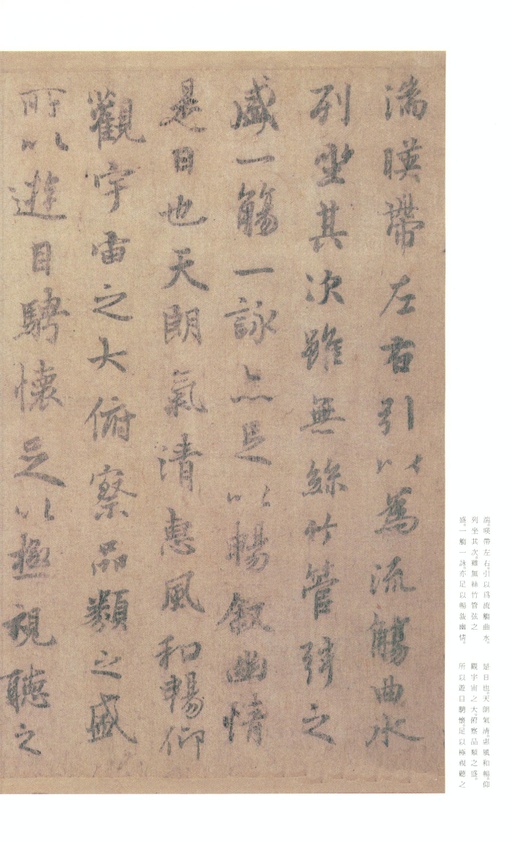 湍暎帶左右引以為流觴曲水
列坐其次雖無絲竹管弦之
盛一觴一詠亦足以暢敘幽情
是日也天朗氣清惠風和暢仰
觀宇宙之大俯察品類之盛
所以遊目騁懷足以極視聽之
湍暎帶左右引以爲流觴曲水
列坐其次雖無絲竹管弦之
盛一觴一詠亦足以暢敘幽情
是日也天朗氣清惠風和暢仰
觀宇宙之大俯察品類之盛
所以遊目騁懷足以極視聽之